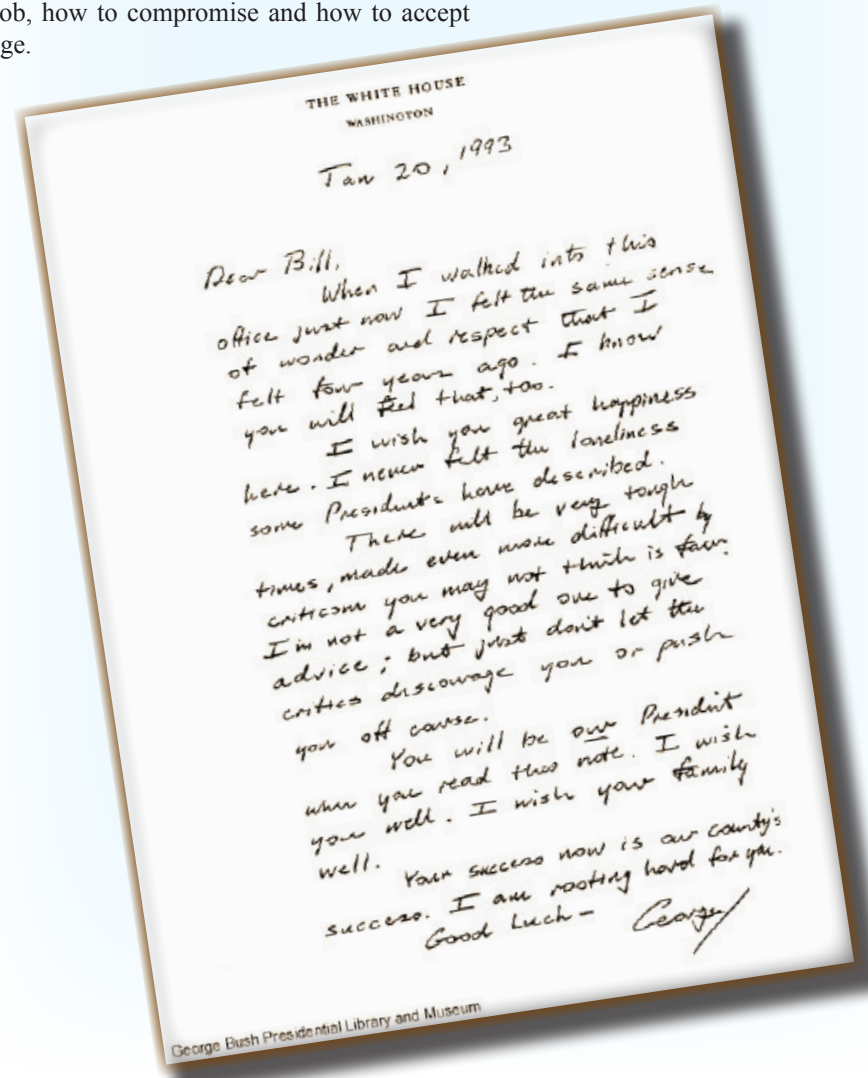 ob, how to compromise and how to accept
ge.
THE WHITE HOUSE
WASHINGTON
Jan 20, 1993
Dear Bill,
When I walked into this
office just now I felt the same sense
of wonder and respect that I
felt four years ago. I know
you will feel that, too.
I wish you great happiness
here. I never felt the loneliness
some Presidents have described.
There will be very tough
times, made even more difficult by
criticism you may not think is fair.
I'm not a very good one to give
advice; but just don't let the
critics discourage you or push
you off course.
You will be our President
when you read this note. I wish
you well. I wish your family
well.
Your success now is our county's
success. I am rooting hard for you.
Good Luck - George
George Bush Presidential Library and Museum